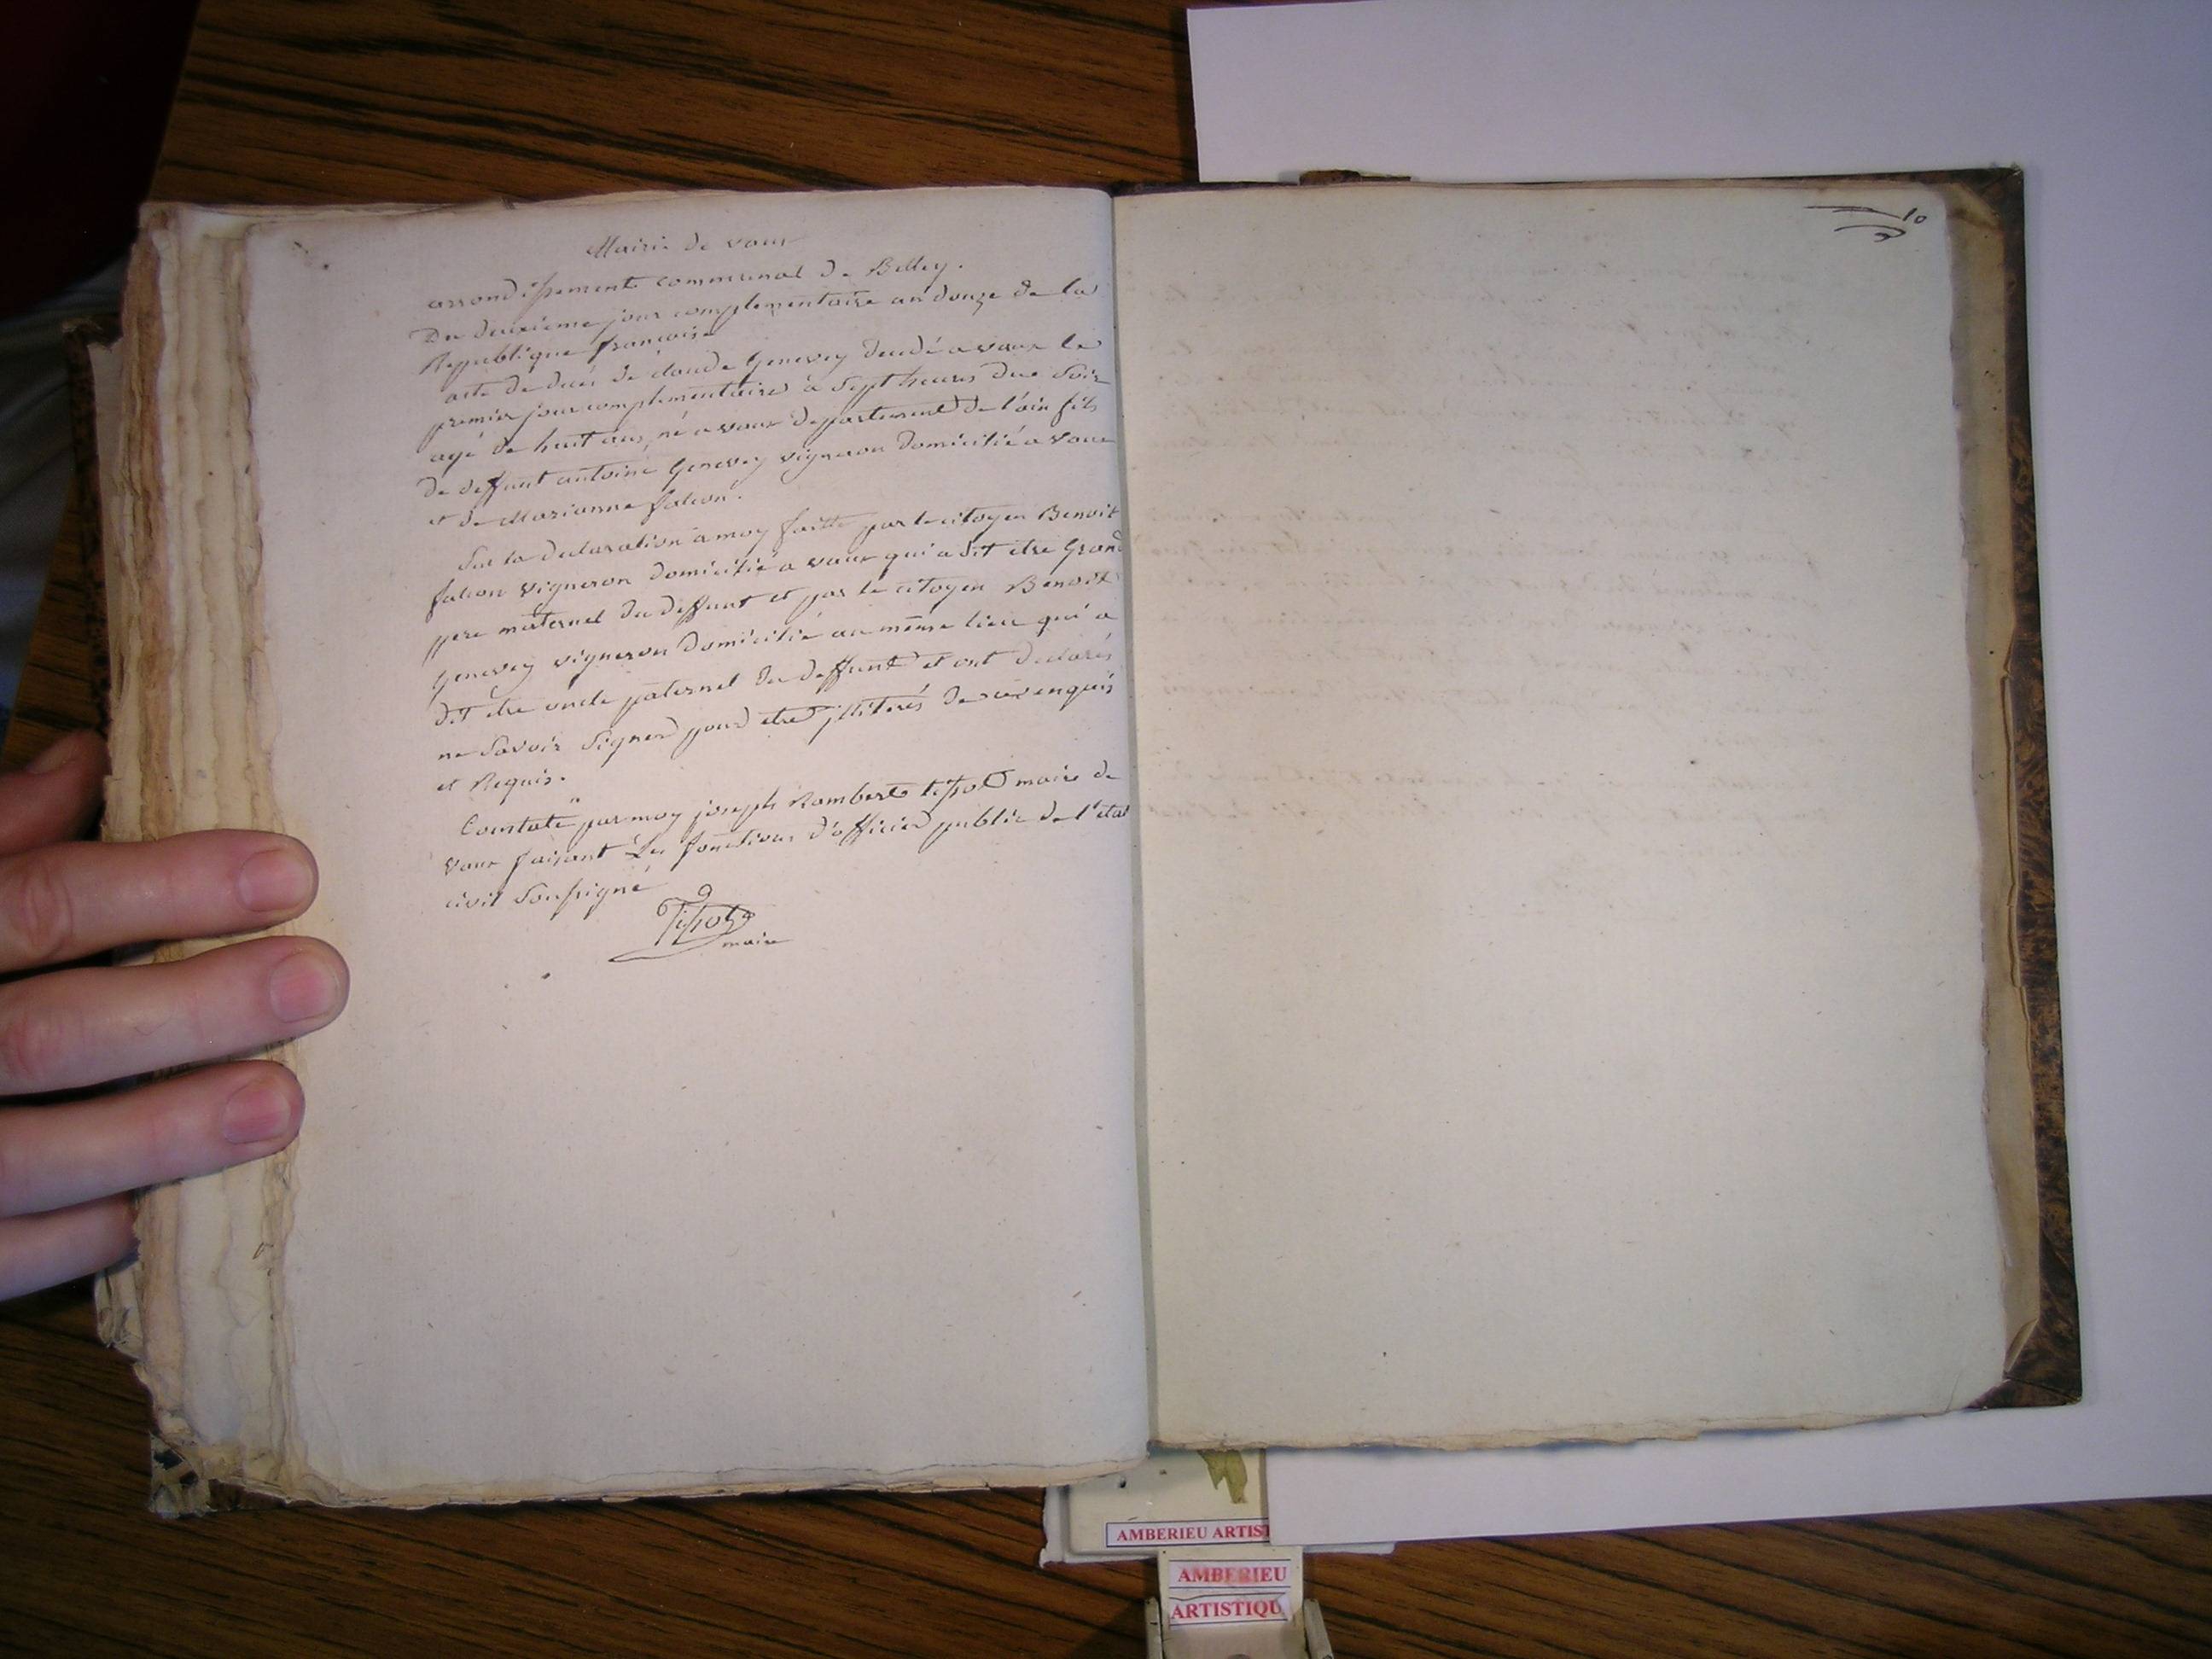 Mairie de vaux
arrondissement communal de Belley.
Du deuxieme jour complementaire an douze de la
Republique francoise
acte de deces de claude Genevey decedé a vaux le
premier jour complementaire à Sept heures du Soir
agé de huit ans, né a vaux departement de l'ain fils
de deffunt antoine Genevey vigneron domicilié a vaux
et de Marianne falcon.
Sur la declaration a moy faitte par le citoyen Benoit
falcon vigneron domicilié a vaux qui a dit etre Grand
pere maternel du deffunt et par le citoyen Benoit
Genevey vigneron domicilié au même lieu qui a
dit etre oncle paternel du deffunt et ont declarés
ne Savoir Signer pour etre jlliterés de ce enquis
et Requis.
Constaté par moy joseph Rambert tissot maire de
vaux faisant Les fonctions d'officier public de l'etat
civil Soussigné
Tissot
maire
10
AMBERIEU ARTIST
AMBERIEU
ARTISTIQU